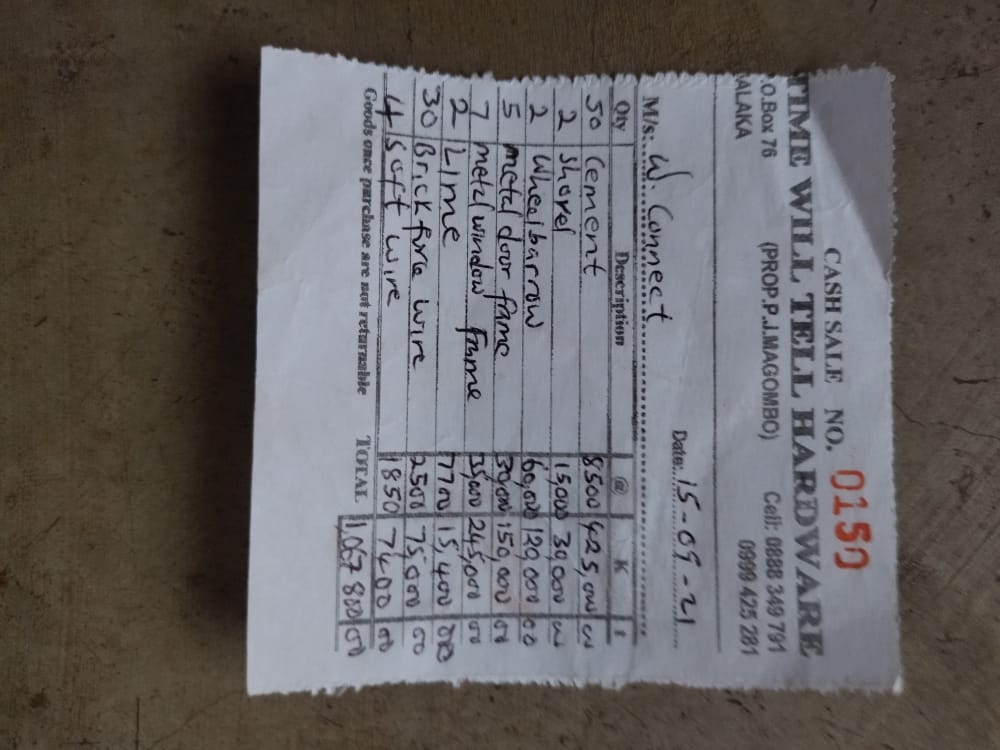 CASH SALE NO. 0150
TIME WILL TELL HARDWARE
.O.Box 76 (PROP.P.J.MAGOMBO) Cell: 0888 349 791
ALAKA 0999 425 281
Date: 15-09-21
M/s: W. Connect
Qty Description @ K t
50 Cement 8500 425,000 00
2 shovel 15,000 30,000 00
2 Wheelbarrow 60,000 120,000 00
5 metal door frame 30,000 150,000 00
7 metal window frame 35,000 245,000 00
2 Lime 7700 15,400 00
30 Brickforce wire 2500 75,000 00
4 soft wire 1850 7400 00
Goods once purchase are not returnable TOTAL 1,067 800 00